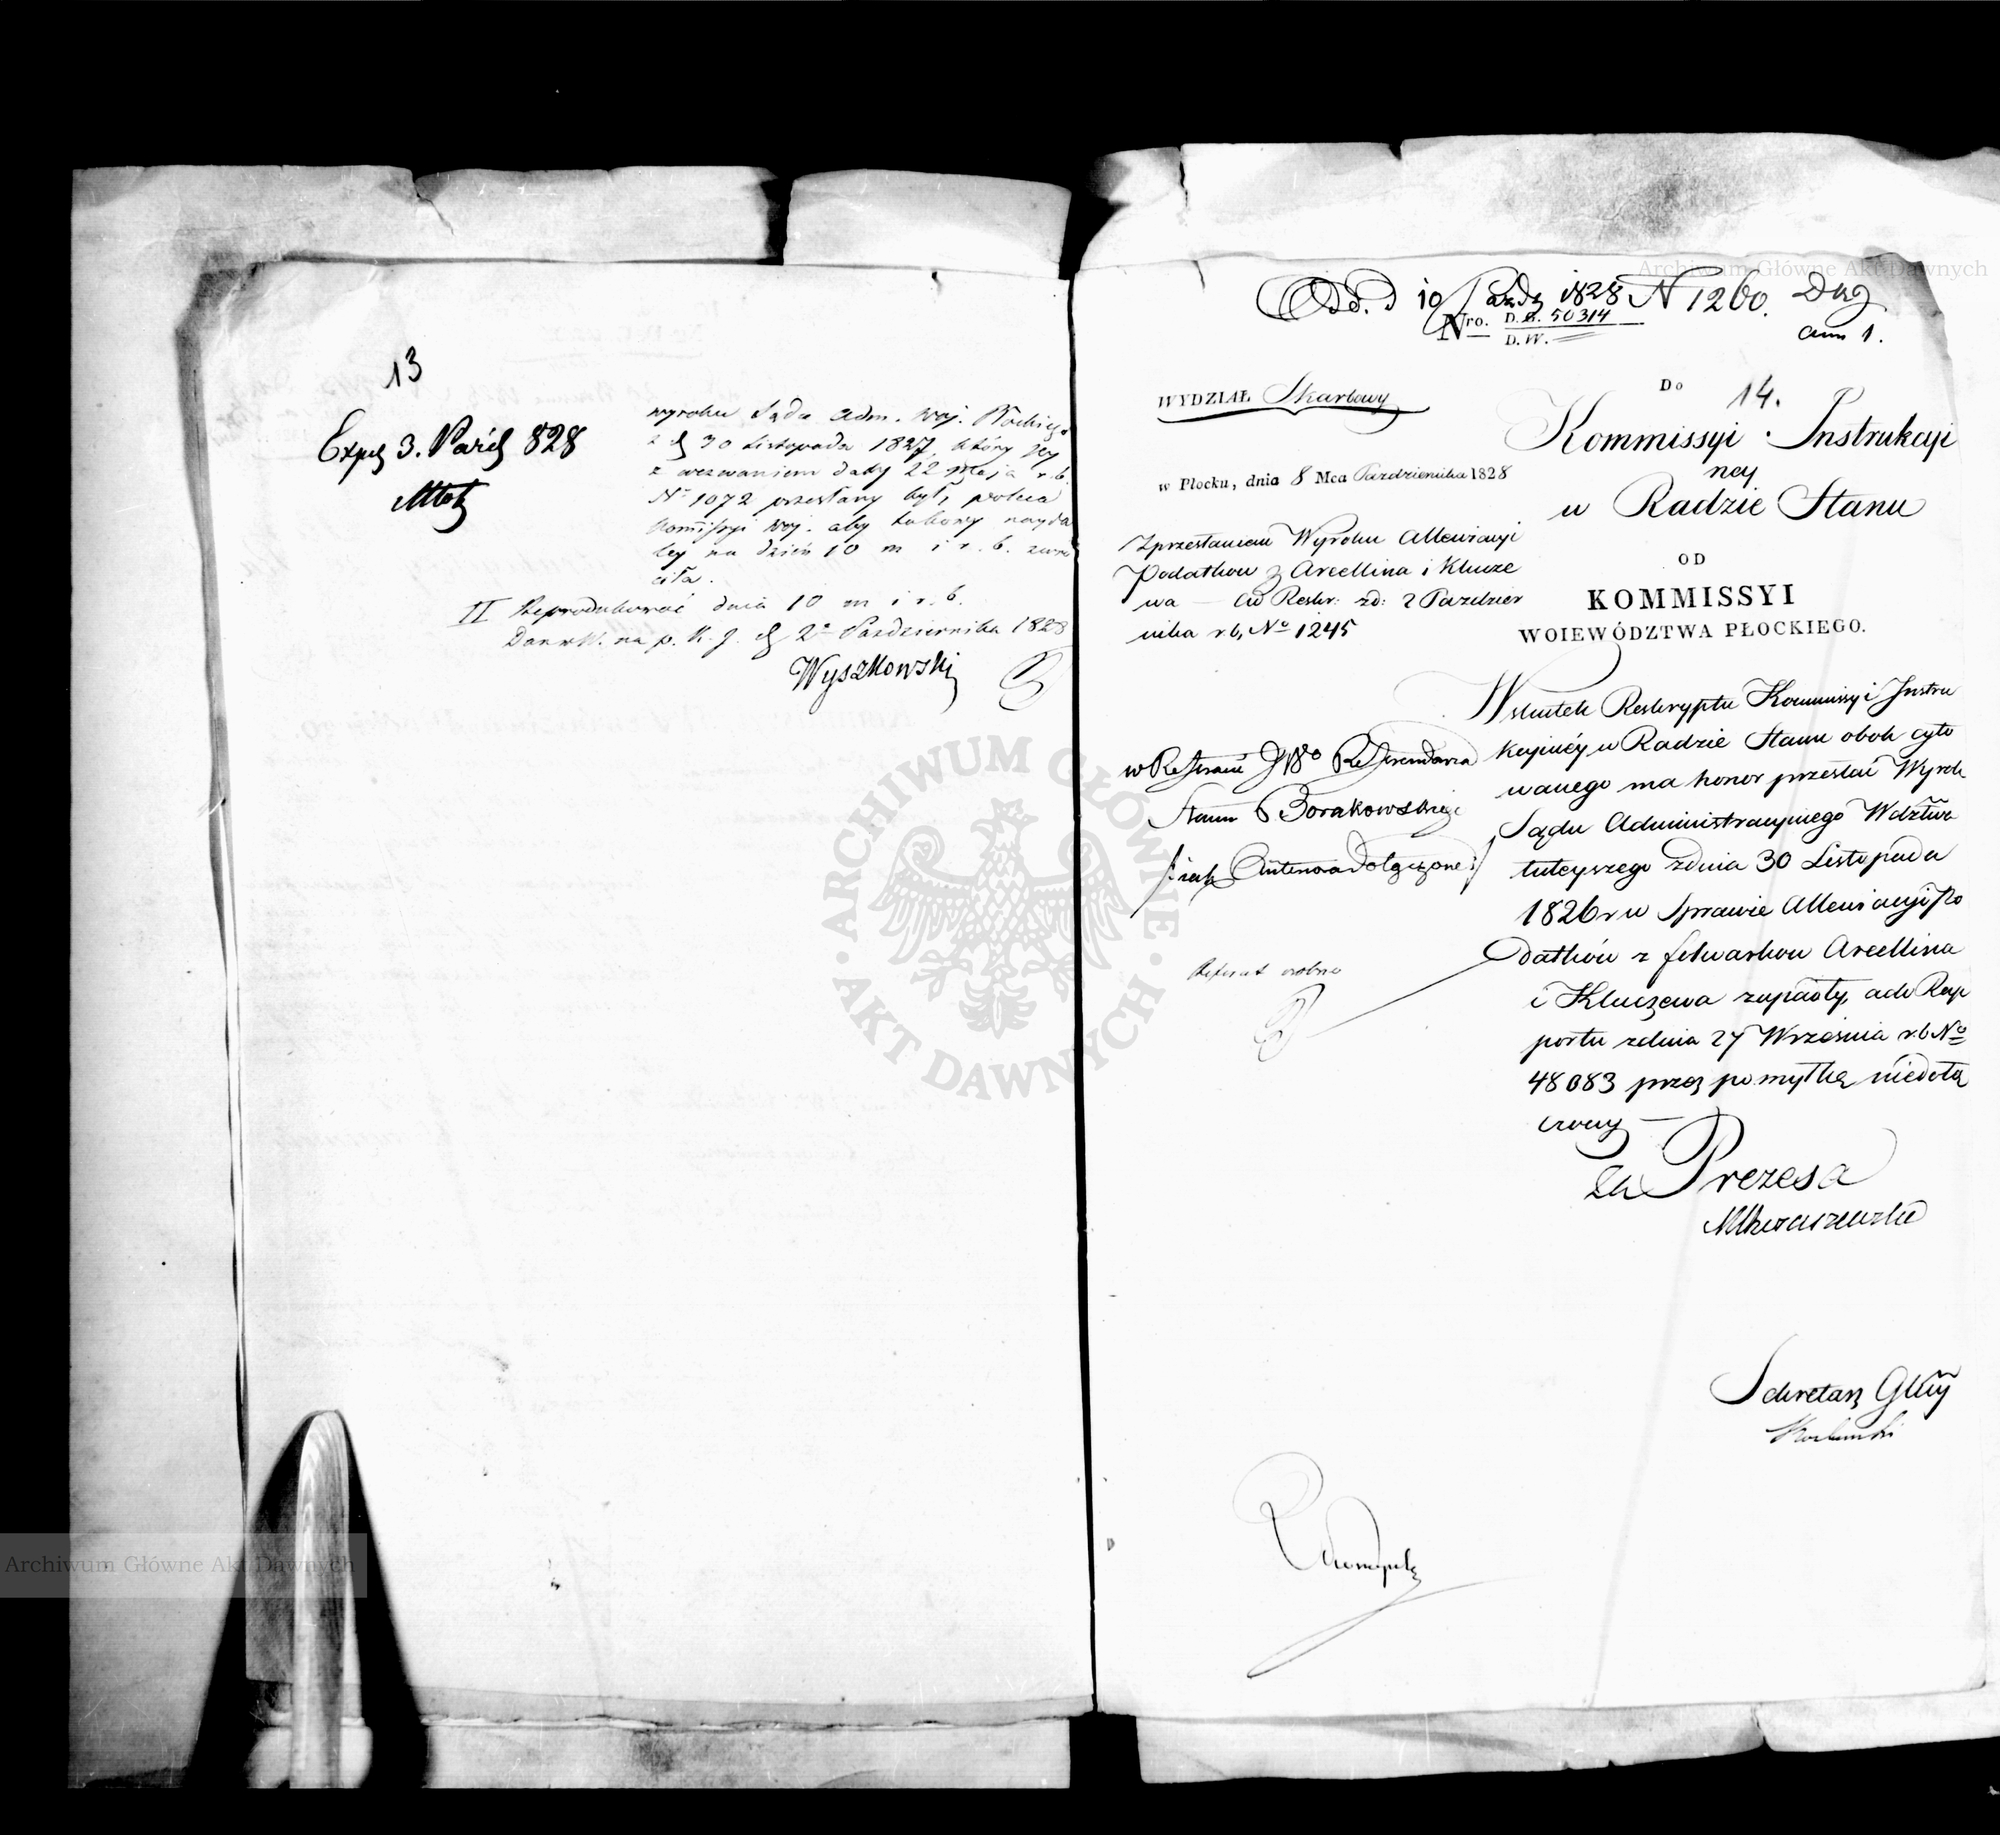 13
Exped 3. Paźd 828
wyroku Sądu Adm. Woj. Płockiego
z d 30 Listopada 1827, który Jej
z wezwaniem daty 22 Maja r. b.
N° 1072 przesłany był, poleca
Kommissyi Woj. aby takowy nayda
ley na dzień 10 m i r. b. zwró
ciła.
II Reprodukować dnia 10 m i r. b.
na p. K. J. d 2° Października 1828
Wyszkowski
Odd. d 10 Paźdz 1828 N 1260.
ann 1.
Nro. D. G. 50314
D. W.
WYDZIAŁ Skarbowy
w Płocku, dnia 8 Mca Pazdziernika 1828
Zprzesłaniem Wyroku Allewiacyi
Podatkow z Arcellina i Klucze
wa — ad Reskr: zd: 2 Pazdzier
nika r b, No 1245
w Referacie JWo Referendarza
Stanu Borakowskiego
Referat osobno
Do 14.
Kommissyi Instrukcyi
ney
w Radzie Stanu
OD
KOMMISSYI
WOIEWÓDZTWA PŁOCKIEGO.
Wskutek Reskryptu Kommissyi Instru
kcyinéy w Radzie Stanu obok cyto
wanego ma honor przesłać Wyrok
Sądu Administracyinego Wdztwa
tuteyszego zdnia 30 Listopada
1826 r w Sprawie Allewiacyi Po
datków z folwarkow Arcellina
i Kluczewa zapadły, ad Rap
portu zdnia 27 Września r. b No
48083 przez pomyłkę niedołą
czony —
Za Prezesa
Sekretarz Glny
Archiwum Główne Akt Dawnych
ARCHIWUM GŁÓWNE AKT DAWNYCH
Archiwum Główne Akt Dawnych